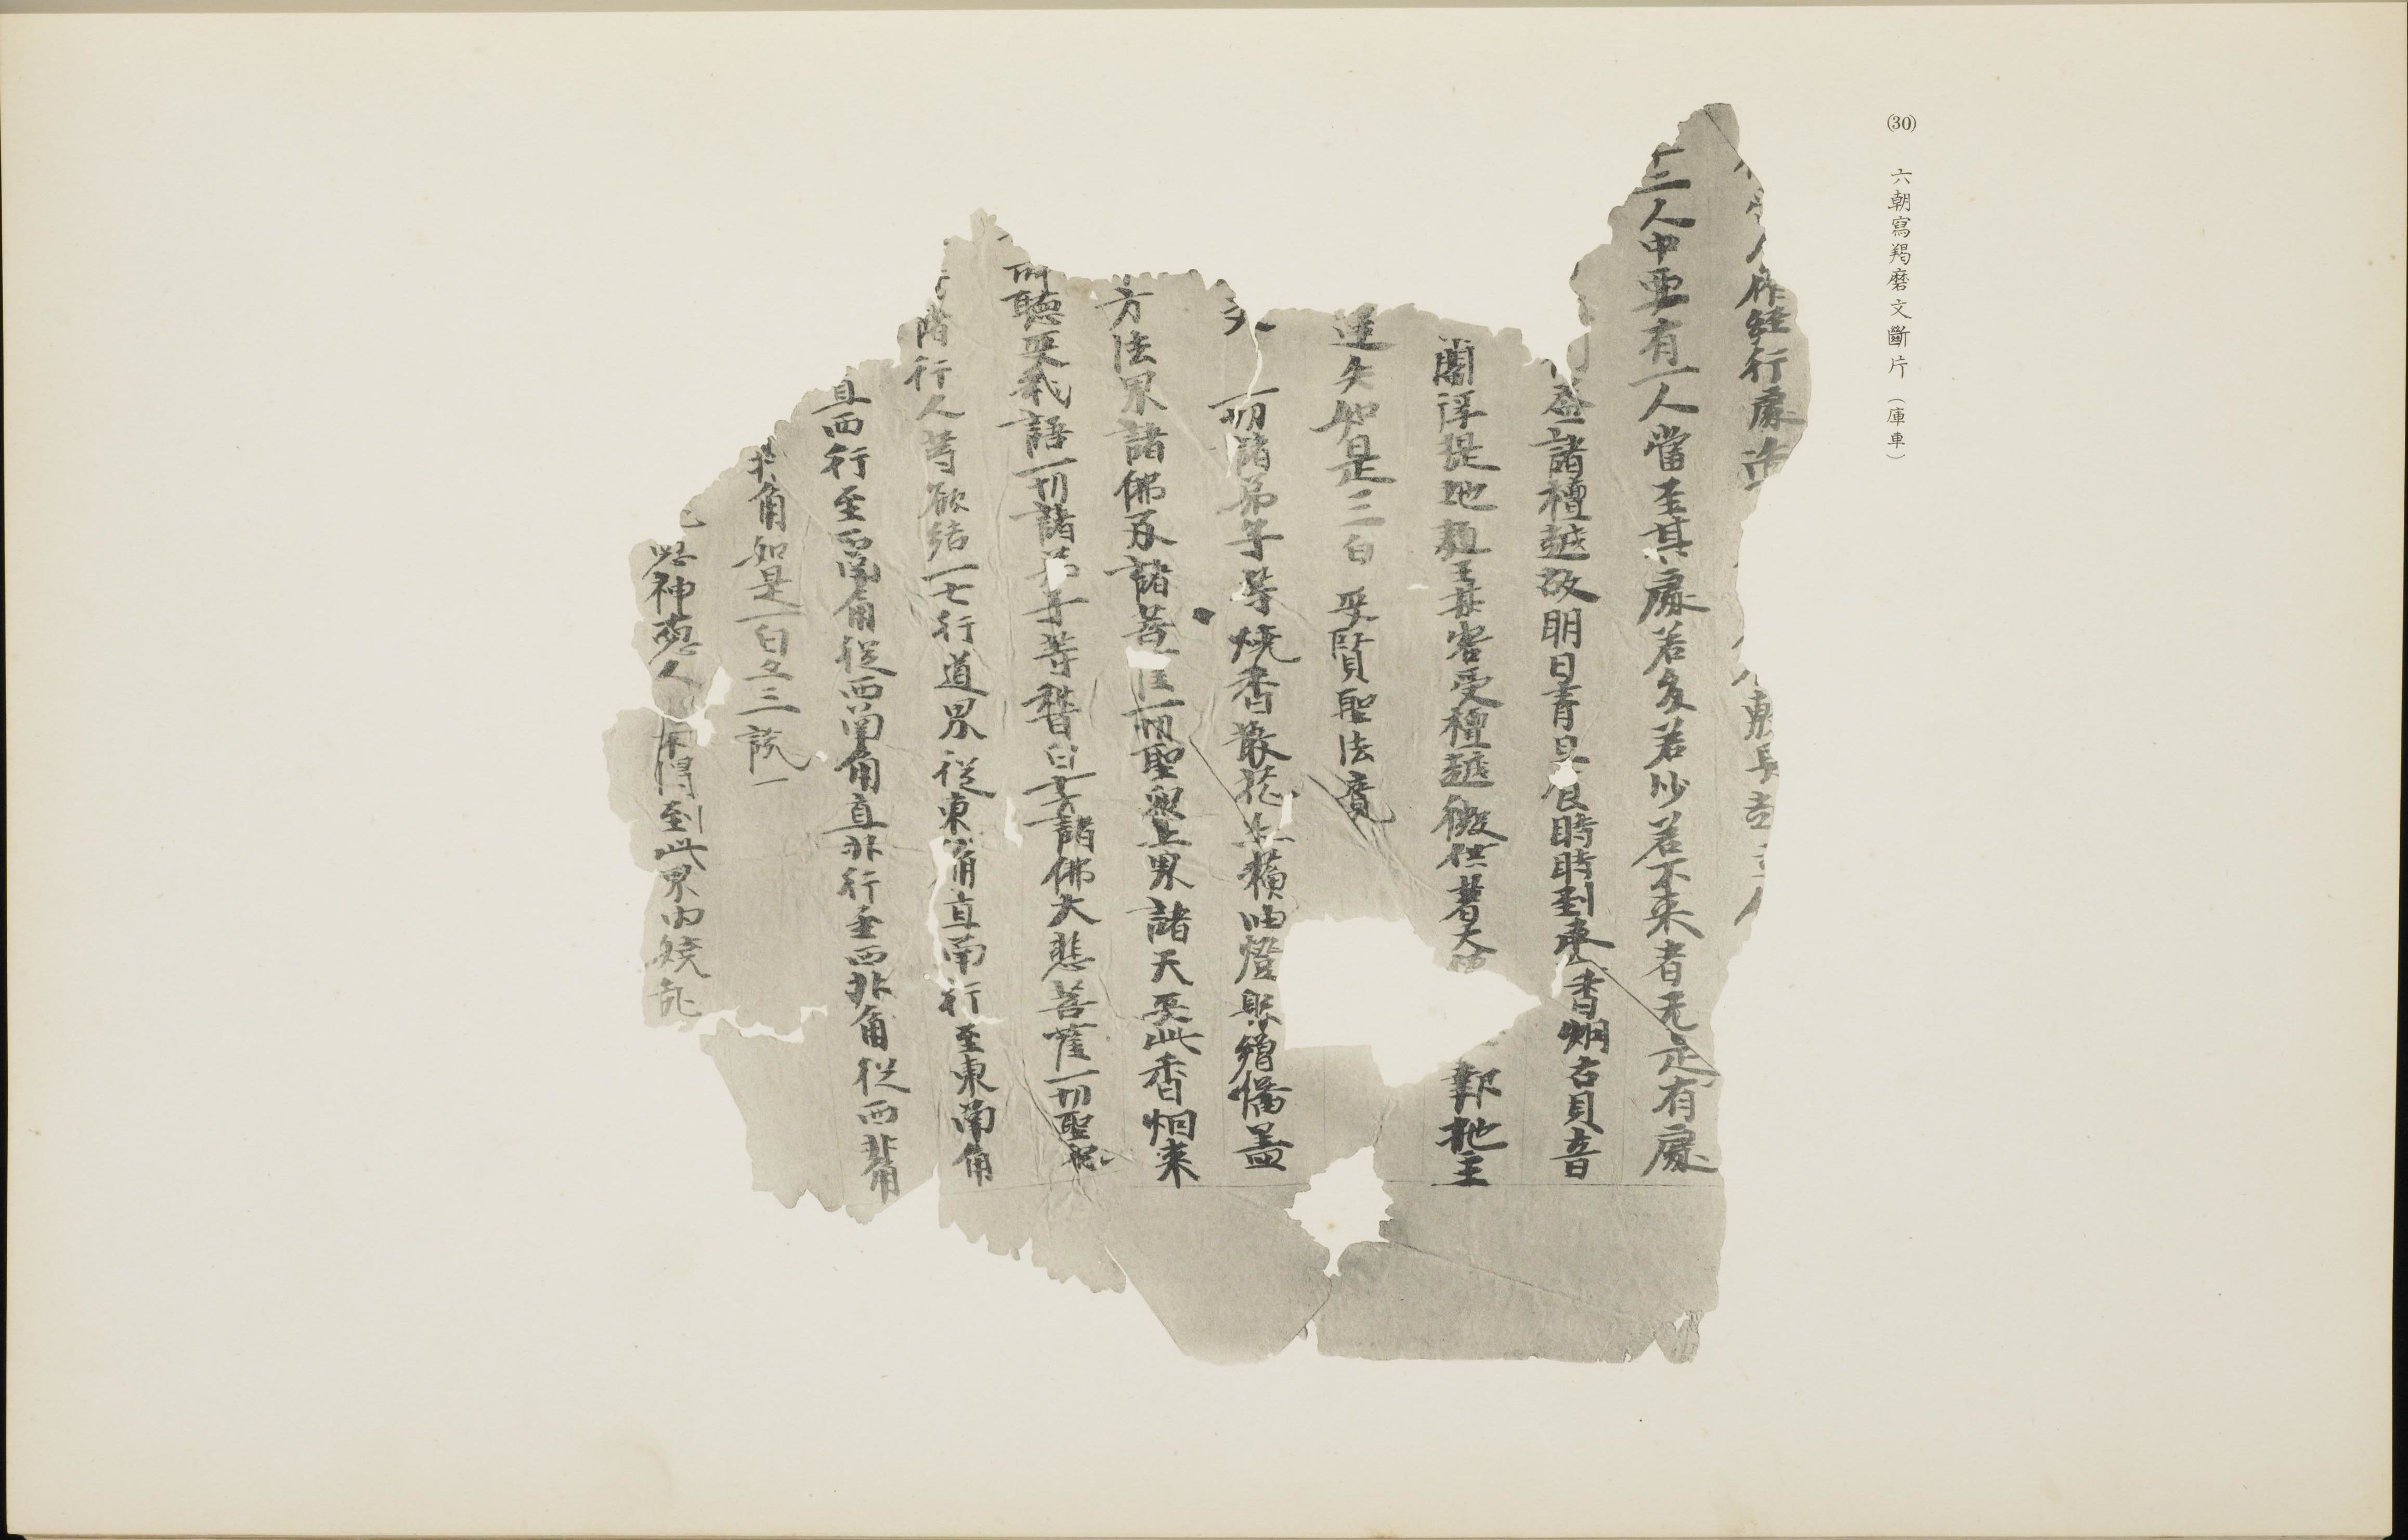 (30) 六朝寫羯磨文斷片（庫車）
人作經行處造 長 主人
三人中要有一人當至其處若多若少若不来者无定有處
盛諸檀越故明日青旦食時時到来香烟右貝音
閻浮提地頭王其審受檀越微供著大 郭地主
逆矢如是三白 受賢聖法竟
一切諸弟子等燒香散花 燈懸繒幡蓋
方法界諸佛及諸菩 一切聖衆上界諸天受此香烟来
聽受我語一切諸弟子等稽白十方諸佛大悲菩薩一切聖衆
行人等欲結一七行道界從東角直南行至東南角
直西行至西南角從西南角直北行至西北角從西北角
北角如是一白二三說一
神惡人不得到此界內嬈亂